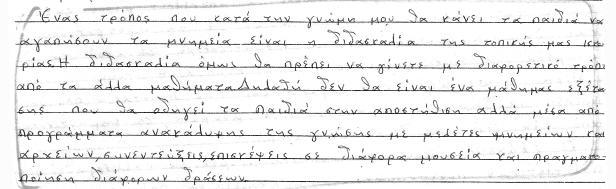 Ένας τρόπος που κατά την γνώμη μου θα κάνει τα παιδιά να
αγαπήσουν τα μνημεία είναι η διδασκαλία της τοπικής μας ιστο
ρίας. Η διδασκαλία όμως θα πρέπει να γίνετε με διαφορετικό τρόπο
από τα άλλα μαθήματα. Δηλαδή δεν θα είναι ένα μάθημας εξέτα
σης που θα οδηγεί τα παιδιά στην αποστήθιση αλλά μέσα από
προγράμματα ανακάλυψης της γνώσης με μελέτες μνημείων και
αρχείων, συνεντεύξεις, επισκέψεις σε διάφορα μουσεία και πραγματο
ποίηση διάφορων δράσεων.